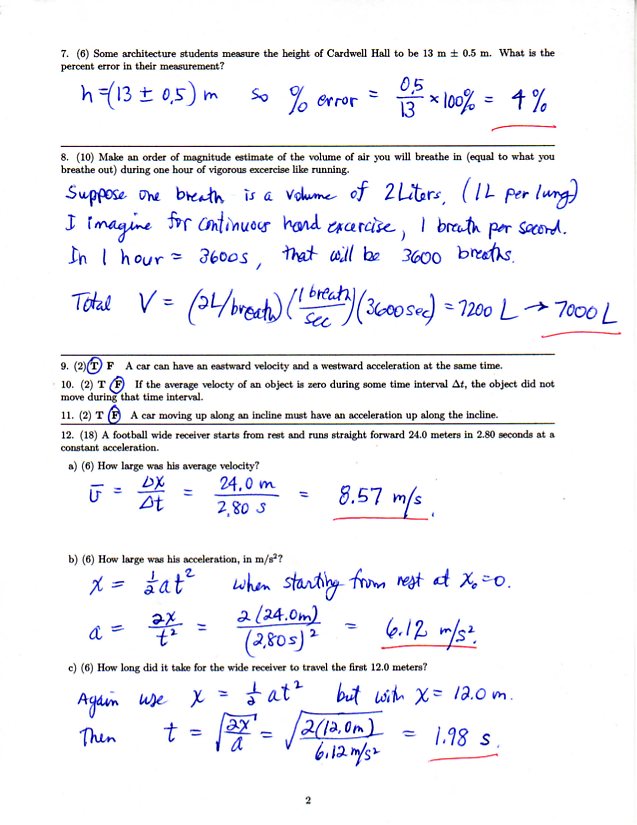 7. (6) Some architecture students measure the height of Cardwell Hall to be 13 m ± 0.5 m. What is the
percent error in their measurement?
h = (13 ± 0,5) m so % error = 0,5/13 × 100% = 4 %
8. (10) Make an order of magnitude estimate of the volume of air you will breathe in (equal to what you
breathe out) during one hour of vigorous excercise like running.
Suppose one breath is a volume of 2 Liters, (1L per lung)
I imagine for continuous hard excercise, 1 breath per second.
In 1 hour = 3600s, that will be 3600 breaths.
Total V = (2L/breath)(1 breath/sec)(3600 sec) = 7200 L → 7000 L
9. (2) T F A car can have an eastward velocity and a westward acceleration at the same time.
10. (2) T F If the average velocty of an object is zero during some time interval Δt, the object did not
move during that time interval.
11. (2) T F A car moving up along an incline must have an acceleration up along the incline.
12. (18) A football wide receiver starts from rest and runs straight forward 24.0 meters in 2.80 seconds at a
constant acceleration.
a) (6) How large was his average velocity?
v̄ = Δx/Δt = 24.0 m/2,80 s = 8.57 m/s.
b) (6) How large was his acceleration, in m/s²?
x = ½at² when starting from rest at x₀=0.
a = 2x/t² = 2(24.0m)/(2,80s)² = 6.12 m/s².
c) (6) How long did it take for the wide receiver to travel the first 12.0 meters?
Again use x = ½at² but with x = 12.0 m.
Then t = √(2x/a) = √(2(12,0m)/6.12 m/s²) = 1.98 s.
2